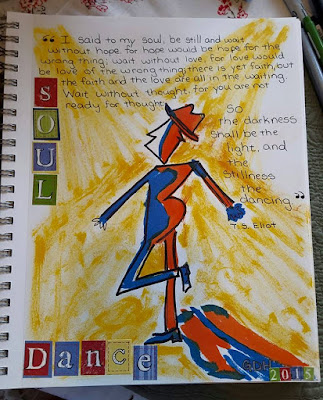 "I said to my soul, be still and wait
without hope, for hope would be hope for the
wrong thing; wait without love, for love would
be love of the wrong thing; there is yet faith, but
the faith and the love are all in the waiting.
Wait without thought, for you are not
ready for thought:
So
the darkness
shall be the
light, and
the
stillness
the
dancing."
T.S. Eliot
SOUL
Dance
2015